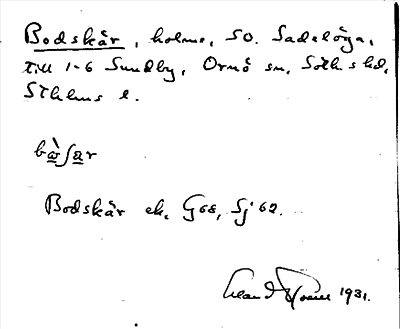 Bodskär, holme, SO. Sadelöga,
till 1-6 Sundby, Ornö sn, Soth.s hd,
Sthlms l.
bå̀sar
Bodskär ek. G68, Sj 62.
1931.